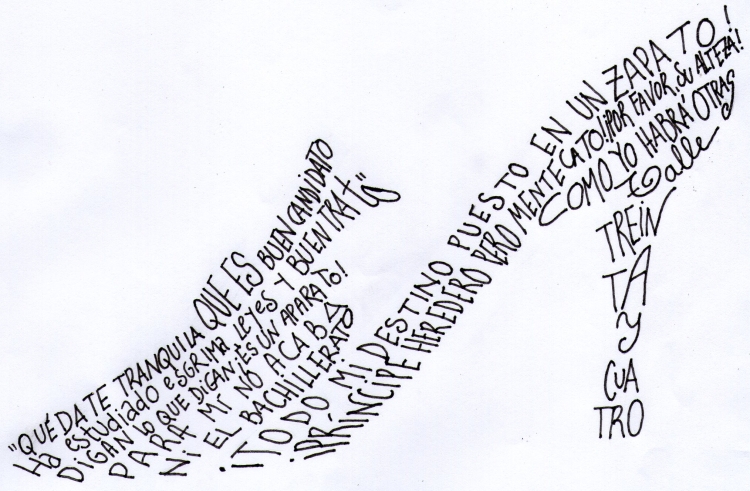 "QUÉDATE TRANQUILA QUE ES BUEN CANDIDATO
Ha estudiado esgrima leyes y BUEN TRATO"
DIGAN LO QUE DIGAN ¡ES UN APARATO!
PARA MÍ NO ACABÓ
NI EL BACHILLERATO
¡TODO MI DESTINO PUESTO EN UN ZAPATO!
¡PRÍNCIPE HEREDERO PERO MENTECATO! ¡POR FAVOR, SU ALTEZA!
COMO YO HABRÁ OTRAS
Talle
TREIN
TA
y
CUA
TRO